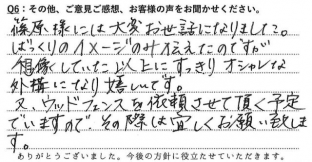 Q6：その他、ご意見ご感想、お客様の声をお聞かせください。
篠原様には大変お世話になりました。
ばっくりのイメージのみ伝えたのですが
想像していた以上にすっきりオシャレな
外構になり嬉しいです。
又、ウッドフェンスを依頼させて頂く予定
でいますので、その際は宜しくお願い致しま
す。
ありがとうございました。今後の方針に役立たせていただきます。